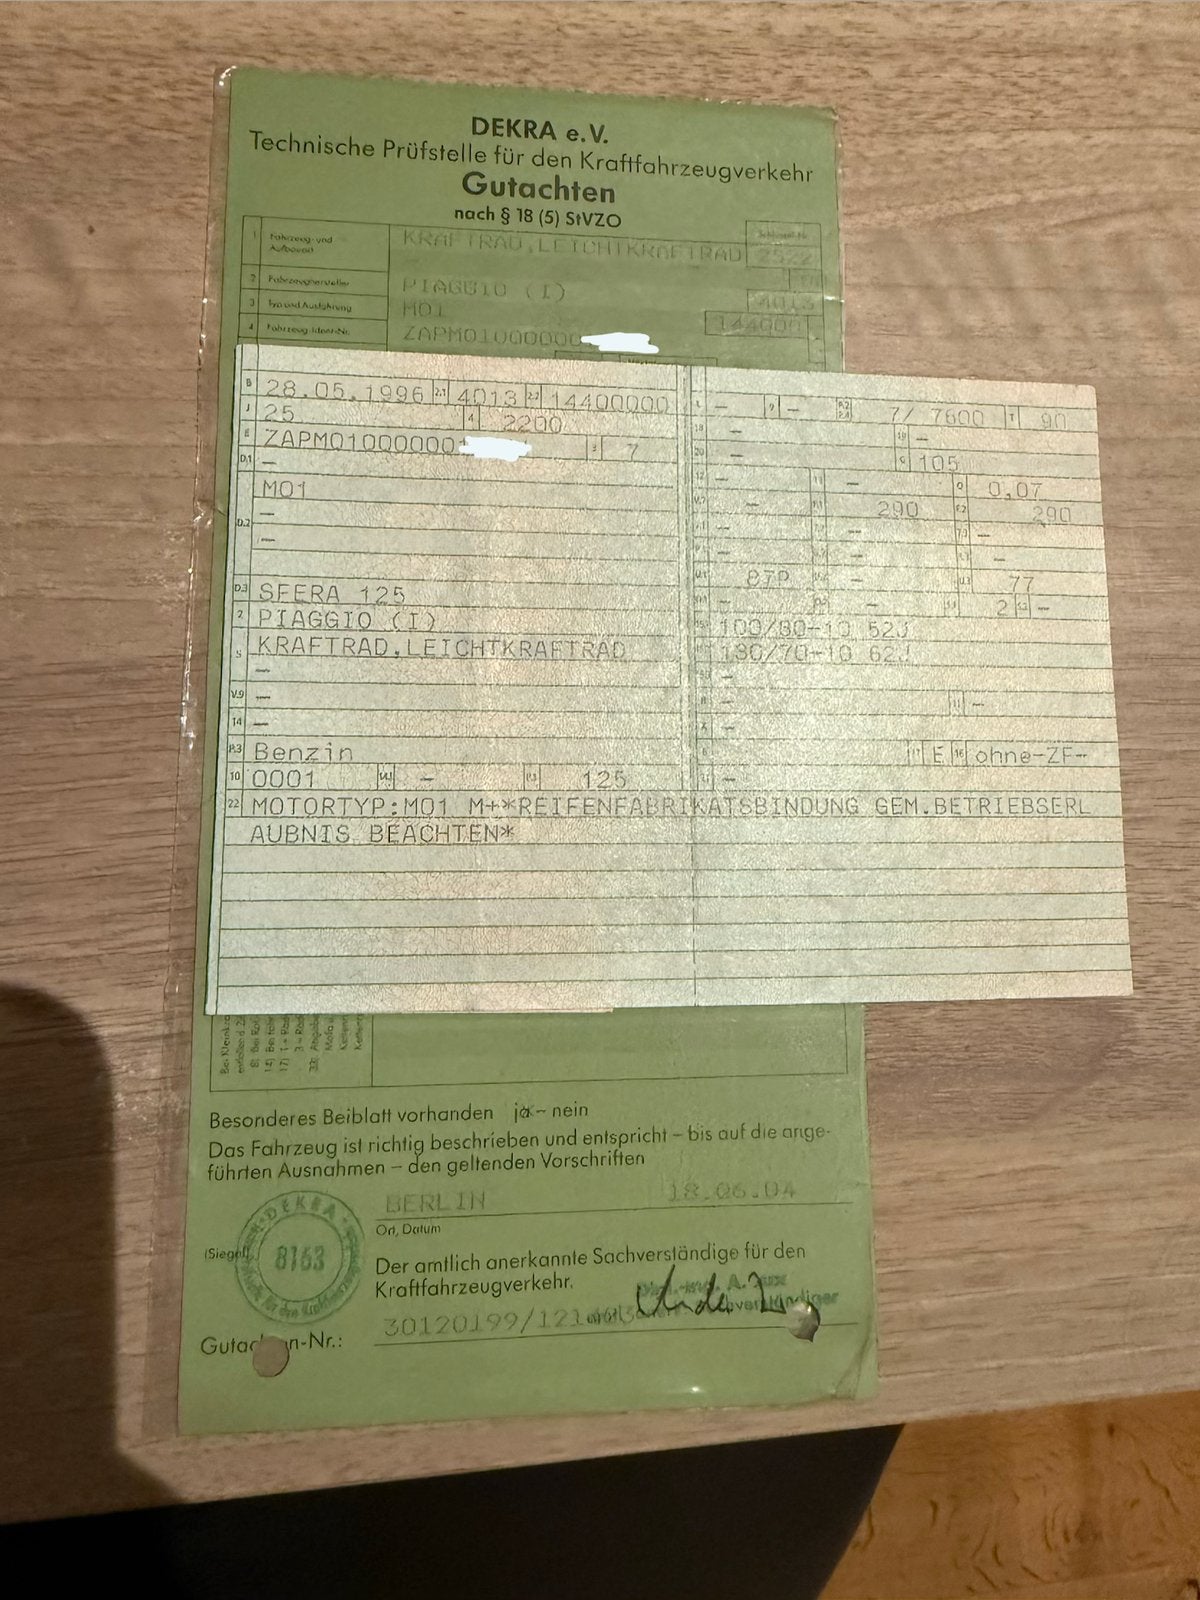 DEKRA e.V.
Technische Prüfstelle für den Kraftfahrzeugverkehr
Gutachten
nach § 18 (5) StVZO
1 Fahrzeug- und Aufbauart KRAFTRAD,LEICHTKRAFTRAD 2522
2 Fahrzeughersteller PIAGGIO (I) 4013
3 Typ und Ausführung M01 144000
4 Fahrzeug-Ident-Nr. ZAPM01000000
B 28.05.1996 2.1 4013 2.2 14400000
J 25 4 2200
E ZAPM01000000 3 7
D.1 –
M01
–
D.2
–
D.3 SFERA 125
2 PIAGGIO (I)
5 KRAFTRAD,LEICHTKRAFTRAD
–
V.9 –
14 –
P.3 Benzin
10 0001 – 125
L – 9 – P.2 P.4 7/ 7600 T 90
18 – 19 –
20 – G 105
12 – 13 – Q 0,07
V.7 – F.1 290 F.2 290
– – –
– – –
U.1 87P – U.3 77
– – 2 –
100/80-10 52J
130/70-10 62J
–
R – 11 –
K –
6 17 E 16 ohne-ZF-
21 –
22 MOTORTYP:M01 M+*REIFENFABRIKATSBINDUNG GEM.BETRIEBSERL
AUBNIS BEACHTEN*
Besonderes Beiblatt vorhanden ja – nein
Das Fahrzeug ist richtig beschrieben und entspricht – bis auf die ange-
führten Ausnahmen – den geltenden Vorschriften
BERLIN 18.06.04
Ort, Datum
(Siegel)
DEKRA
8163
Der amtlich anerkannte Sachverständige für den
Kraftfahrzeugverkehr.
Gutachten-Nr.: 30120199/121